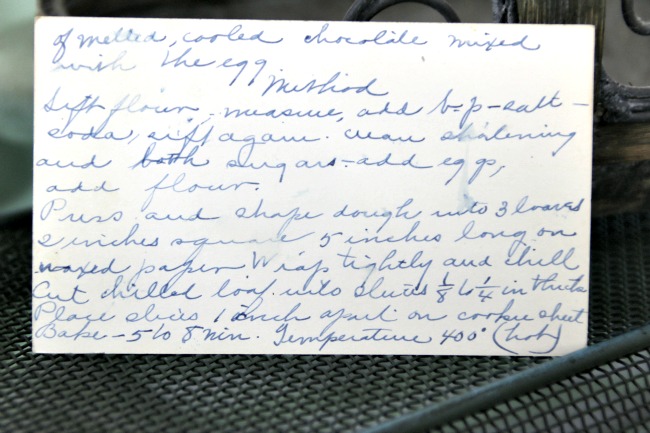 of melted, cooled chocolate mixed
with the egg
Method
Sift flour, measure, add b-p-salt-
soda, sift again. cream shortening
and both sugars-add eggs,
add flour.
Press and shape dough into 3 loaves
2 inches square 5 inches long on
waxed paper Wrap tightly and chill
Cut chilled loaf into slices 1/8 to 1/4 in thick
Place slices 1 inch apart on cookie sheet
Bake - 5 to 8 min. Temperature 400° (hot)